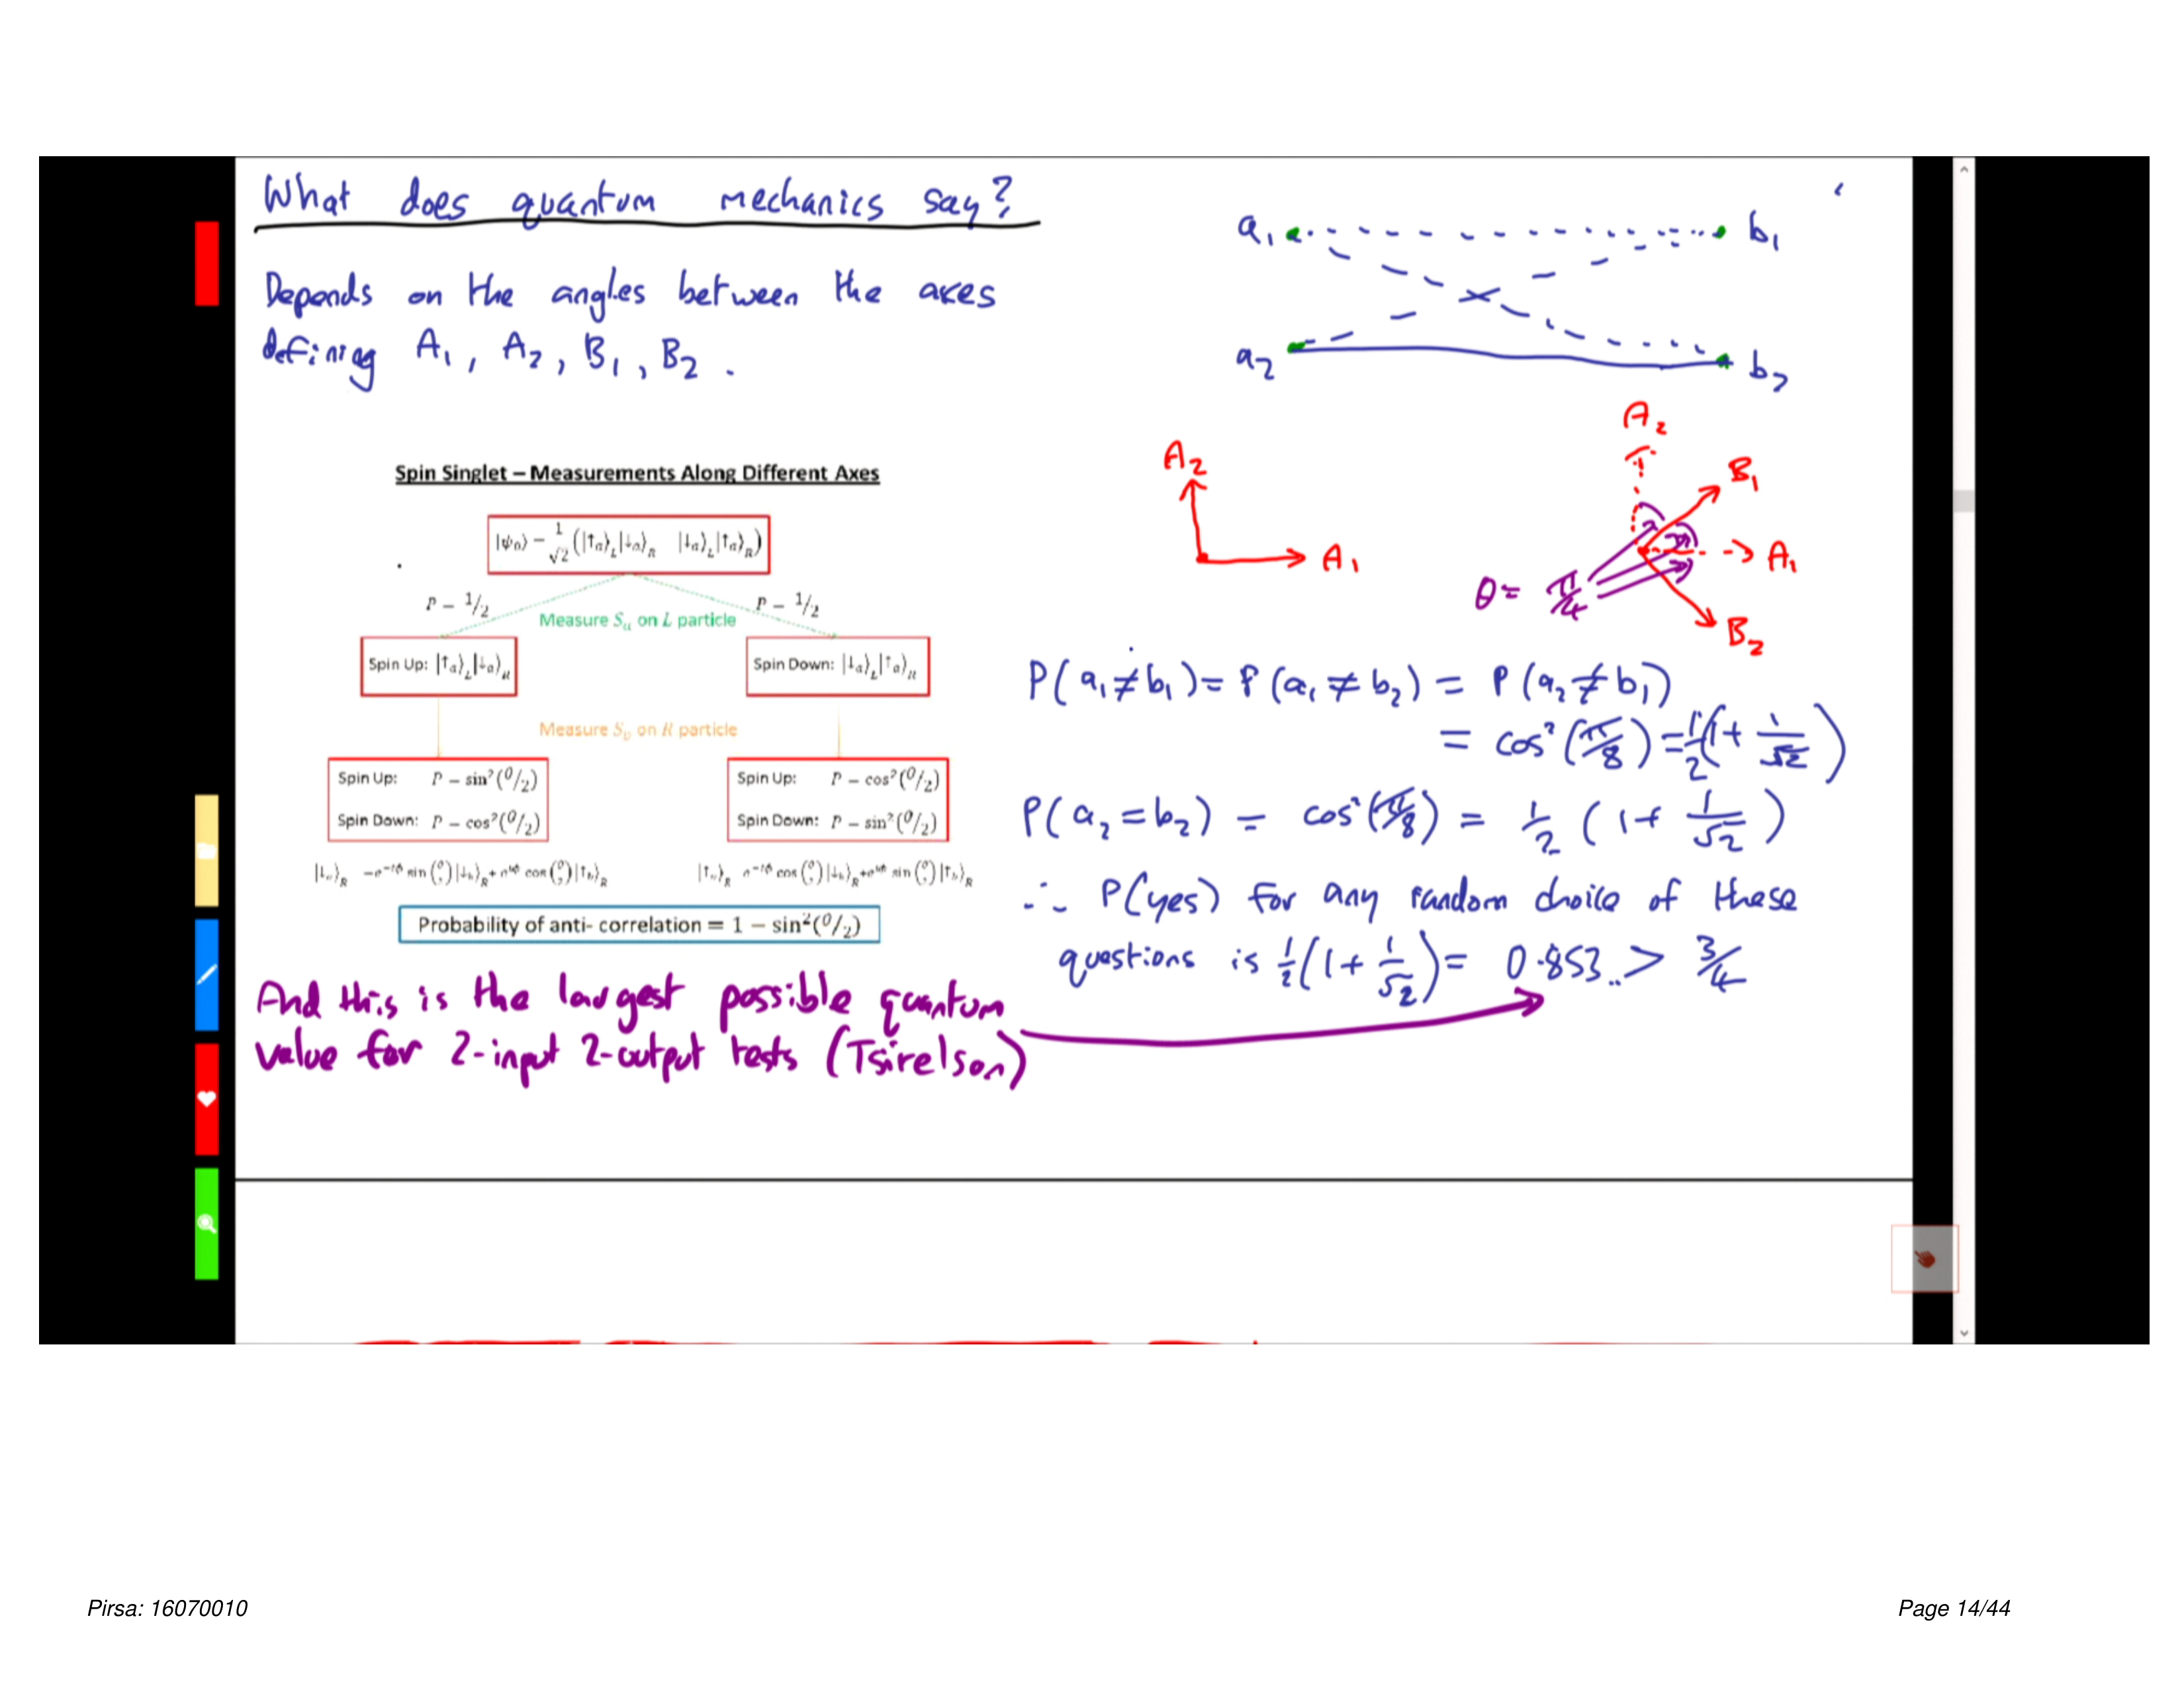 What does quantum mechanics say?
Depends on the angles between the axes
defining A₁, A₂, B₁, B₂.
a₁ b₁
a₂ b₂
A₂
A₁
A₂
B₁
A₁
B₂
θ = π/4
Spin Singlet – Measurements Along Different Axes
P – 1/2
P – 1/2
Measure Sₐ on L particle
Spin Up: |↑ₐ⟩_L|↓ₐ⟩_R
Spin Down: |↓ₐ⟩_L|↑ₐ⟩_R
Measure S_b on R particle
Spin Up: P – sin²(θ/2)
Spin Down: P – cos²(θ/2)
Spin Up: P – cos²(θ/2)
Spin Down: P – sin²(θ/2)
Probability of anti- correlation = 1 – sin²(θ/2)
P(a₁≠b₁) = P(a₁≠b₂) = P(a₂≠b₁)
= cos²(π/8) = 1/2(1+1/√2)
P(a₂=b₂) = cos²(π/8) = 1/2(1+1/√2)
∴ P(yes) for any random choice of these
questions is 1/2(1+1/√2) = 0.853.. > 3/4
And this is the largest possible quantum
value for 2-input 2-output tests (Tsirelson)
Pirsa: 16070010
Page 14/44